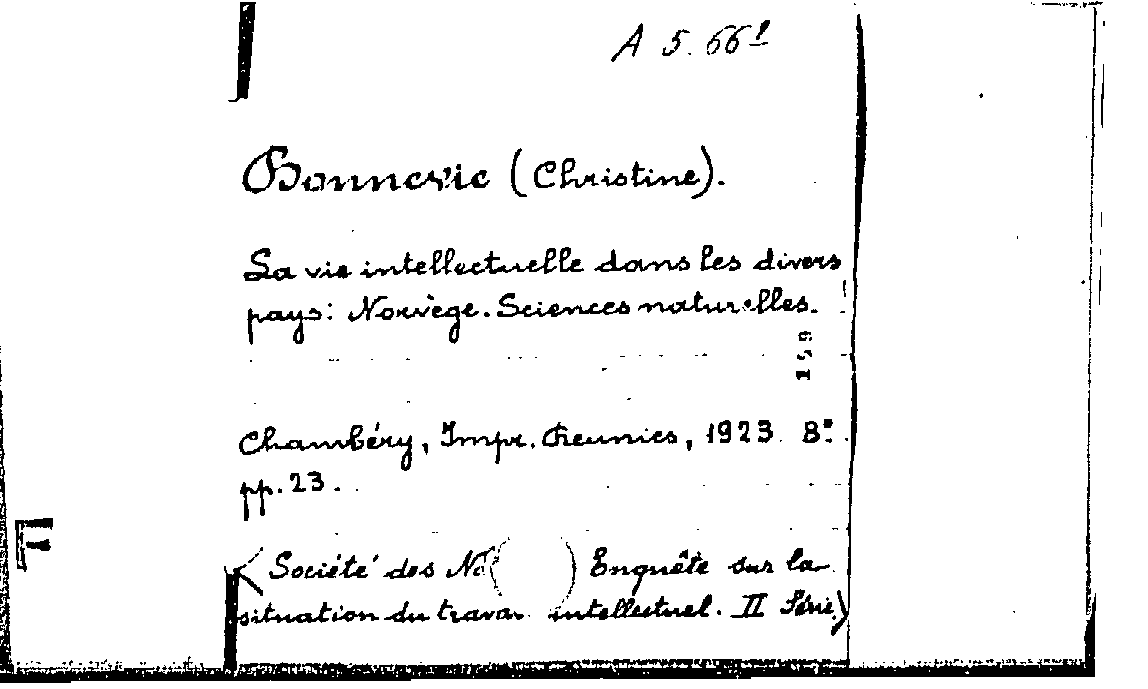 A 5. 66¹
Bonnevie (Christine).
La vie intellectuelle dans les divers
pays: Norvège. Sciences naturelles.
159
Chambéry, Impr. Réunies, 1923. 8°.
pp. 23.
< Société des Enquête sur la
situation du intellectuel. II Série.>